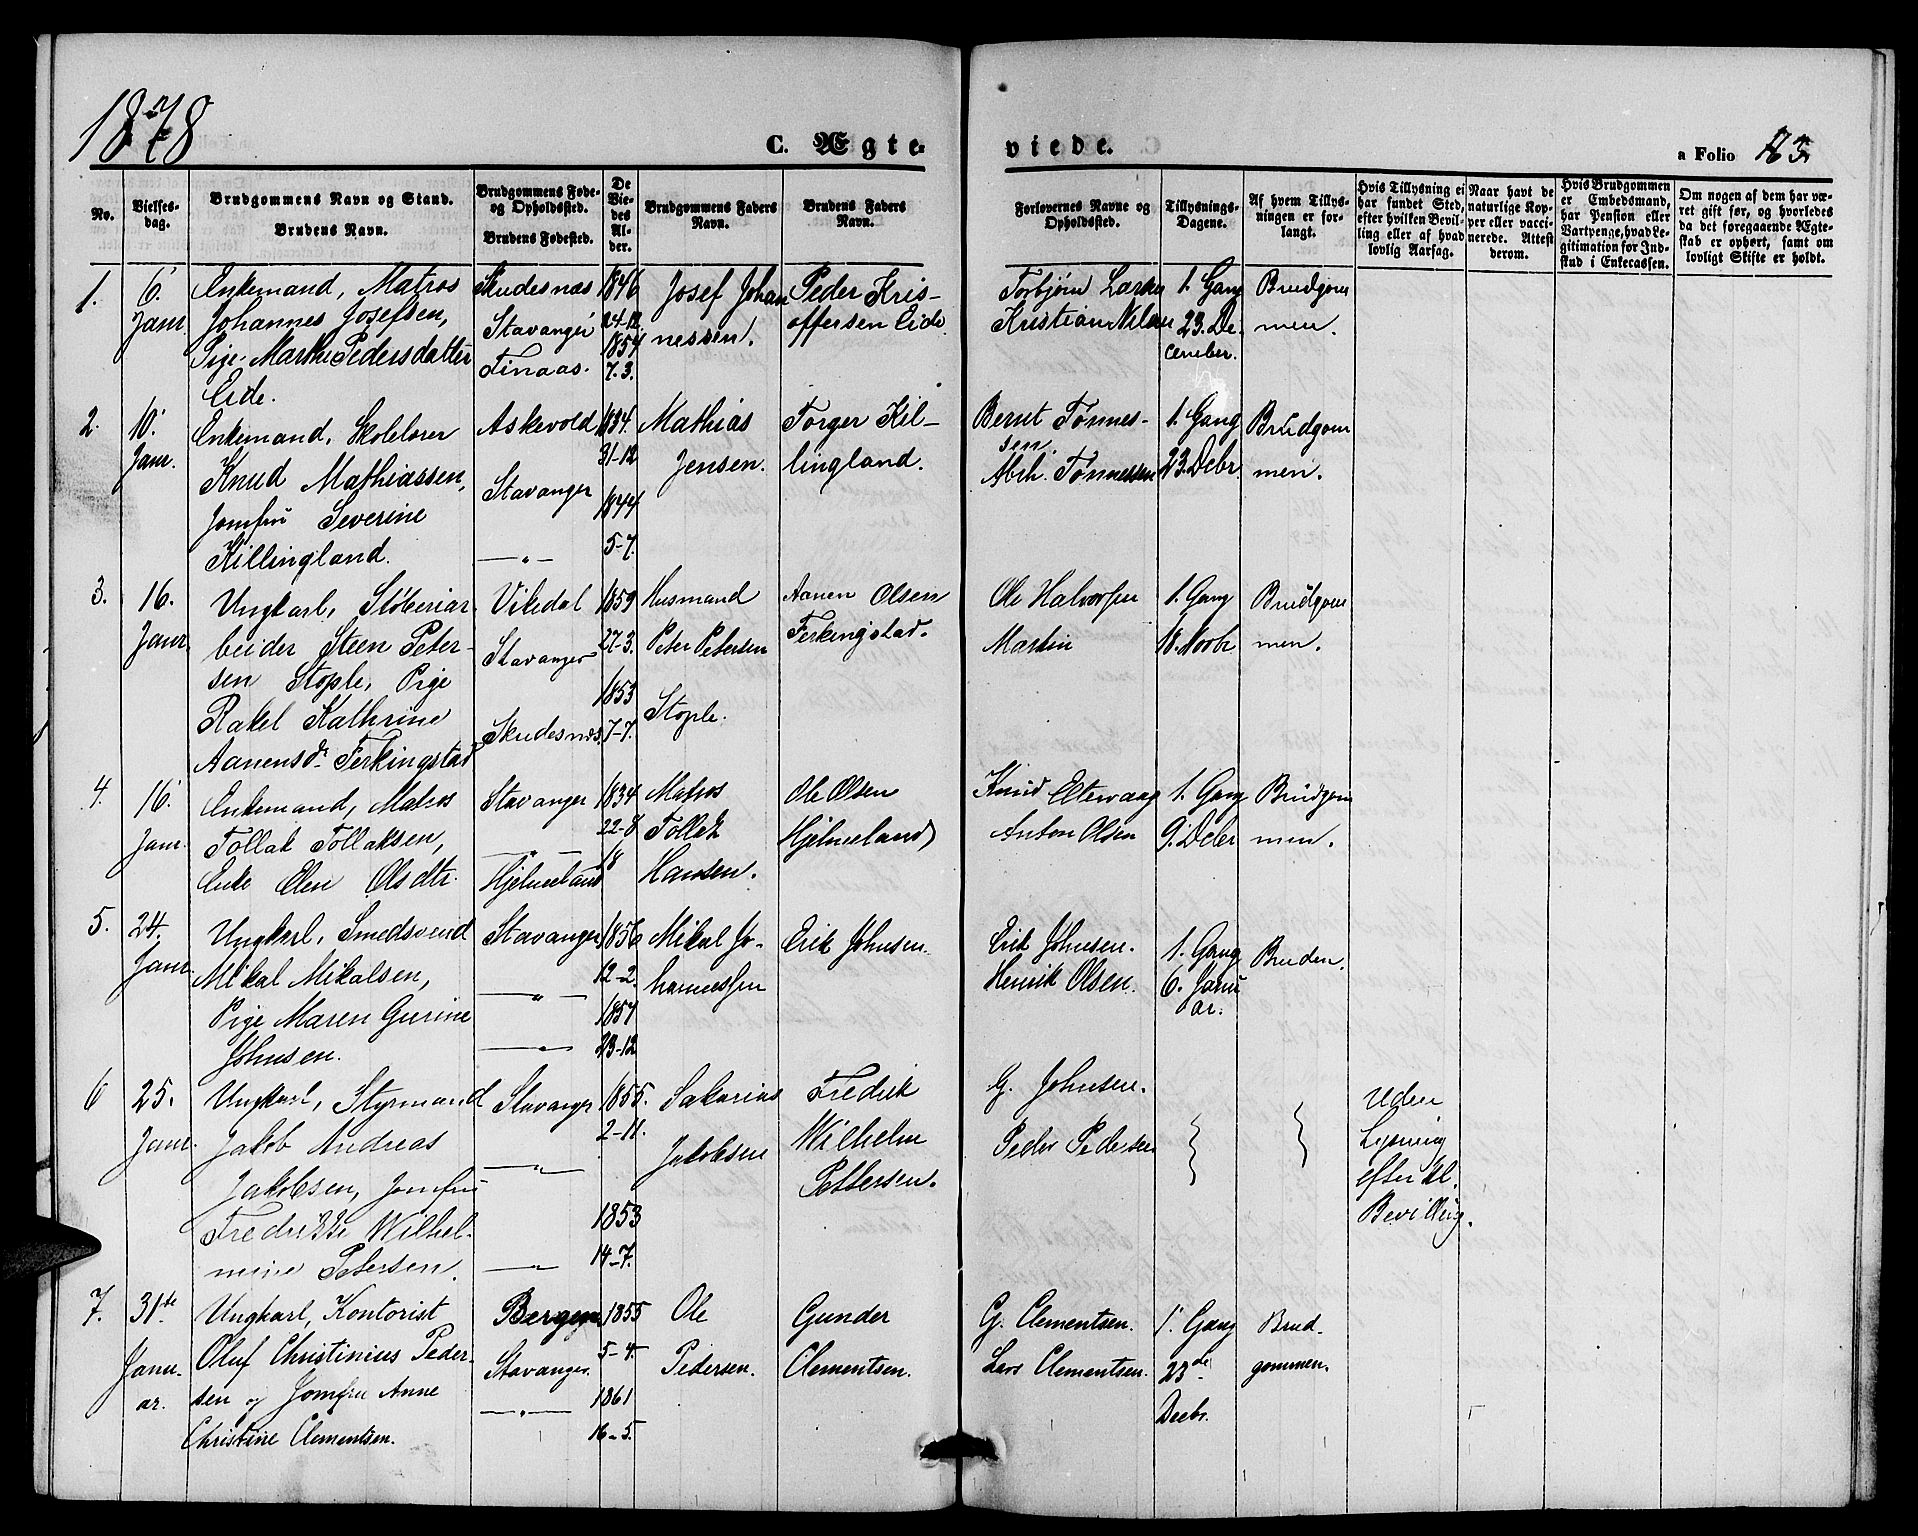 1878
C. Ægte-
viede.
a Folio 183.
No.
Vielses-
dag.
Brudgommens Navn og Stand.
Brudens Navn.
Brudgommens Føde-
og Opholdssted.
Brudens Fødested.
De
Vie-
des
Al-
der.
Brudgommens Faders
Navn.
Brudens Faders
Navn.
Forlovernes Navne og
Opholdssted.
Tillysnings-
Dagene.
Af hvem Tillys-
ningen er for-
langt.
Hvis Tillysning ei
har fundet Sted,
efter hvilken Bevil-
ling eller af hvad
lovlig Aarsag.
Naar havt de
naturlige Kop-
per eller vacci-
nerede. Attest
derom.
Hvis Brudgommen
er Embedsmand,
har Pension eller
Vartpenge, hvad Le-
gitimation for Ind-
skud i Enkecassen.
Om nogen af dem har væ-
ret gift før, og hvorledes
da det foregaaende Ægte-
skab er ophørt, samt om
lovligt Skifte er holdt.
1.
6.
Janr.
Enkemand, Matros
Johannes Josefsen,
Pige Marthe Pedersdatter
Eide.
Skudesnæs
Stavanger
Finaas.
1846
24-12
1854
7.3.
Josef Johan
nessen.
Peder Kris-
offersen Eide.
Torbjørn
Kristian
1. Gang
23. De-
cember.
Brudgom
men.
2.
10.
Janr.
Enkemand, Skolelærer
Knud Mathiassen,
Jomfru Severine
Killingland.
Askevold
Stavanger
—„—
1834.
31-12
1844
5-7.
Mathias
Jensen.
Torger Kil-
lingland.
Bernt Tønnes-
sen.
Abih. Tønnessen
1. Gang
23. Debr.
Brudgom
men.
3.
16.
Janr.
Ungkarl, Støberiar-
beider Steen Peter-
sen Stople, Pige
Rakel Kathrine
Aanensdr. Ferkingstad
Vikedal
Stavanger
Skudesnæs.
1859
27-3.
1853
7-7.
Husmand
Peter Petersen
Stople.
Aanen Olsen
Ferkingstad.
Ole Halvorsen
Martin
1. Gang
18. Novbr
Brudgom
men.
4.
16.
Janr.
Enkemand, Matros
Tollak Tollaksen,
Enke Elen Olsdtr.
Stavanger
—„—
Hjelmeland
1834
22-8
18
Matros
Tollak
Hansen.
Ole Olsen
Hjelmeland
Knud Eltervaag
Anton Olsen
1. Gang
9. Debr
Brudgom
men.
5.
24.
Janr.
Ungkarl, Smedsvend
Mikal Mikalsen,
Pige Maren Gurine
Johnsen.
Stavanger
—„—
—„—
1856
12-2.
1857
23-12
Mikal Jo-
hannessen
Erik Johnsen.
Erik Johnsen.
Henrik Olsen.
1. Gang
6. Janu
ar.
Bruden.
6
25.
Janr.
Ungkarl, Styrmand
Jakob Andreas
Jakobsen, Jomfru
Fredrikke Wilhel-
mine Petersen.
Stavanger
—„—
—„—
1855.
2-11.
1853
14-7.
Sakarias
Jakobsen
Fredrik
Wilhelm
Pettersen.
G. Johnsen.
Peder Pedersen
Uden
Lysning
efter kl.
Bevilling.
7.
31te
Janu-
ar.
Ungkarl, Kontorist
Oluf Christinius Peder-
sen og Jomfru Anne
Christine Clementsen.
Bergen
Stavanger.
—„—
1855
5-4.
1861
16-5.
Ole
Pedersen.
Gunder
Clementsen.
G. Clementsen.
Lars Clementsen.
1. Gang
23de
Decbr.
Brud-
gommen.